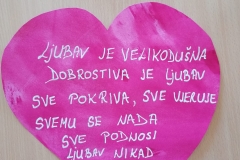 LJUBAV JE VELIKODUŠNA
DOBROSTIVA JE LJUBAV
SVE POKRIVA, SVE VJERUJE
SVEMU SE NADA
SVE PODNOSI
LJUBAV NIKAD